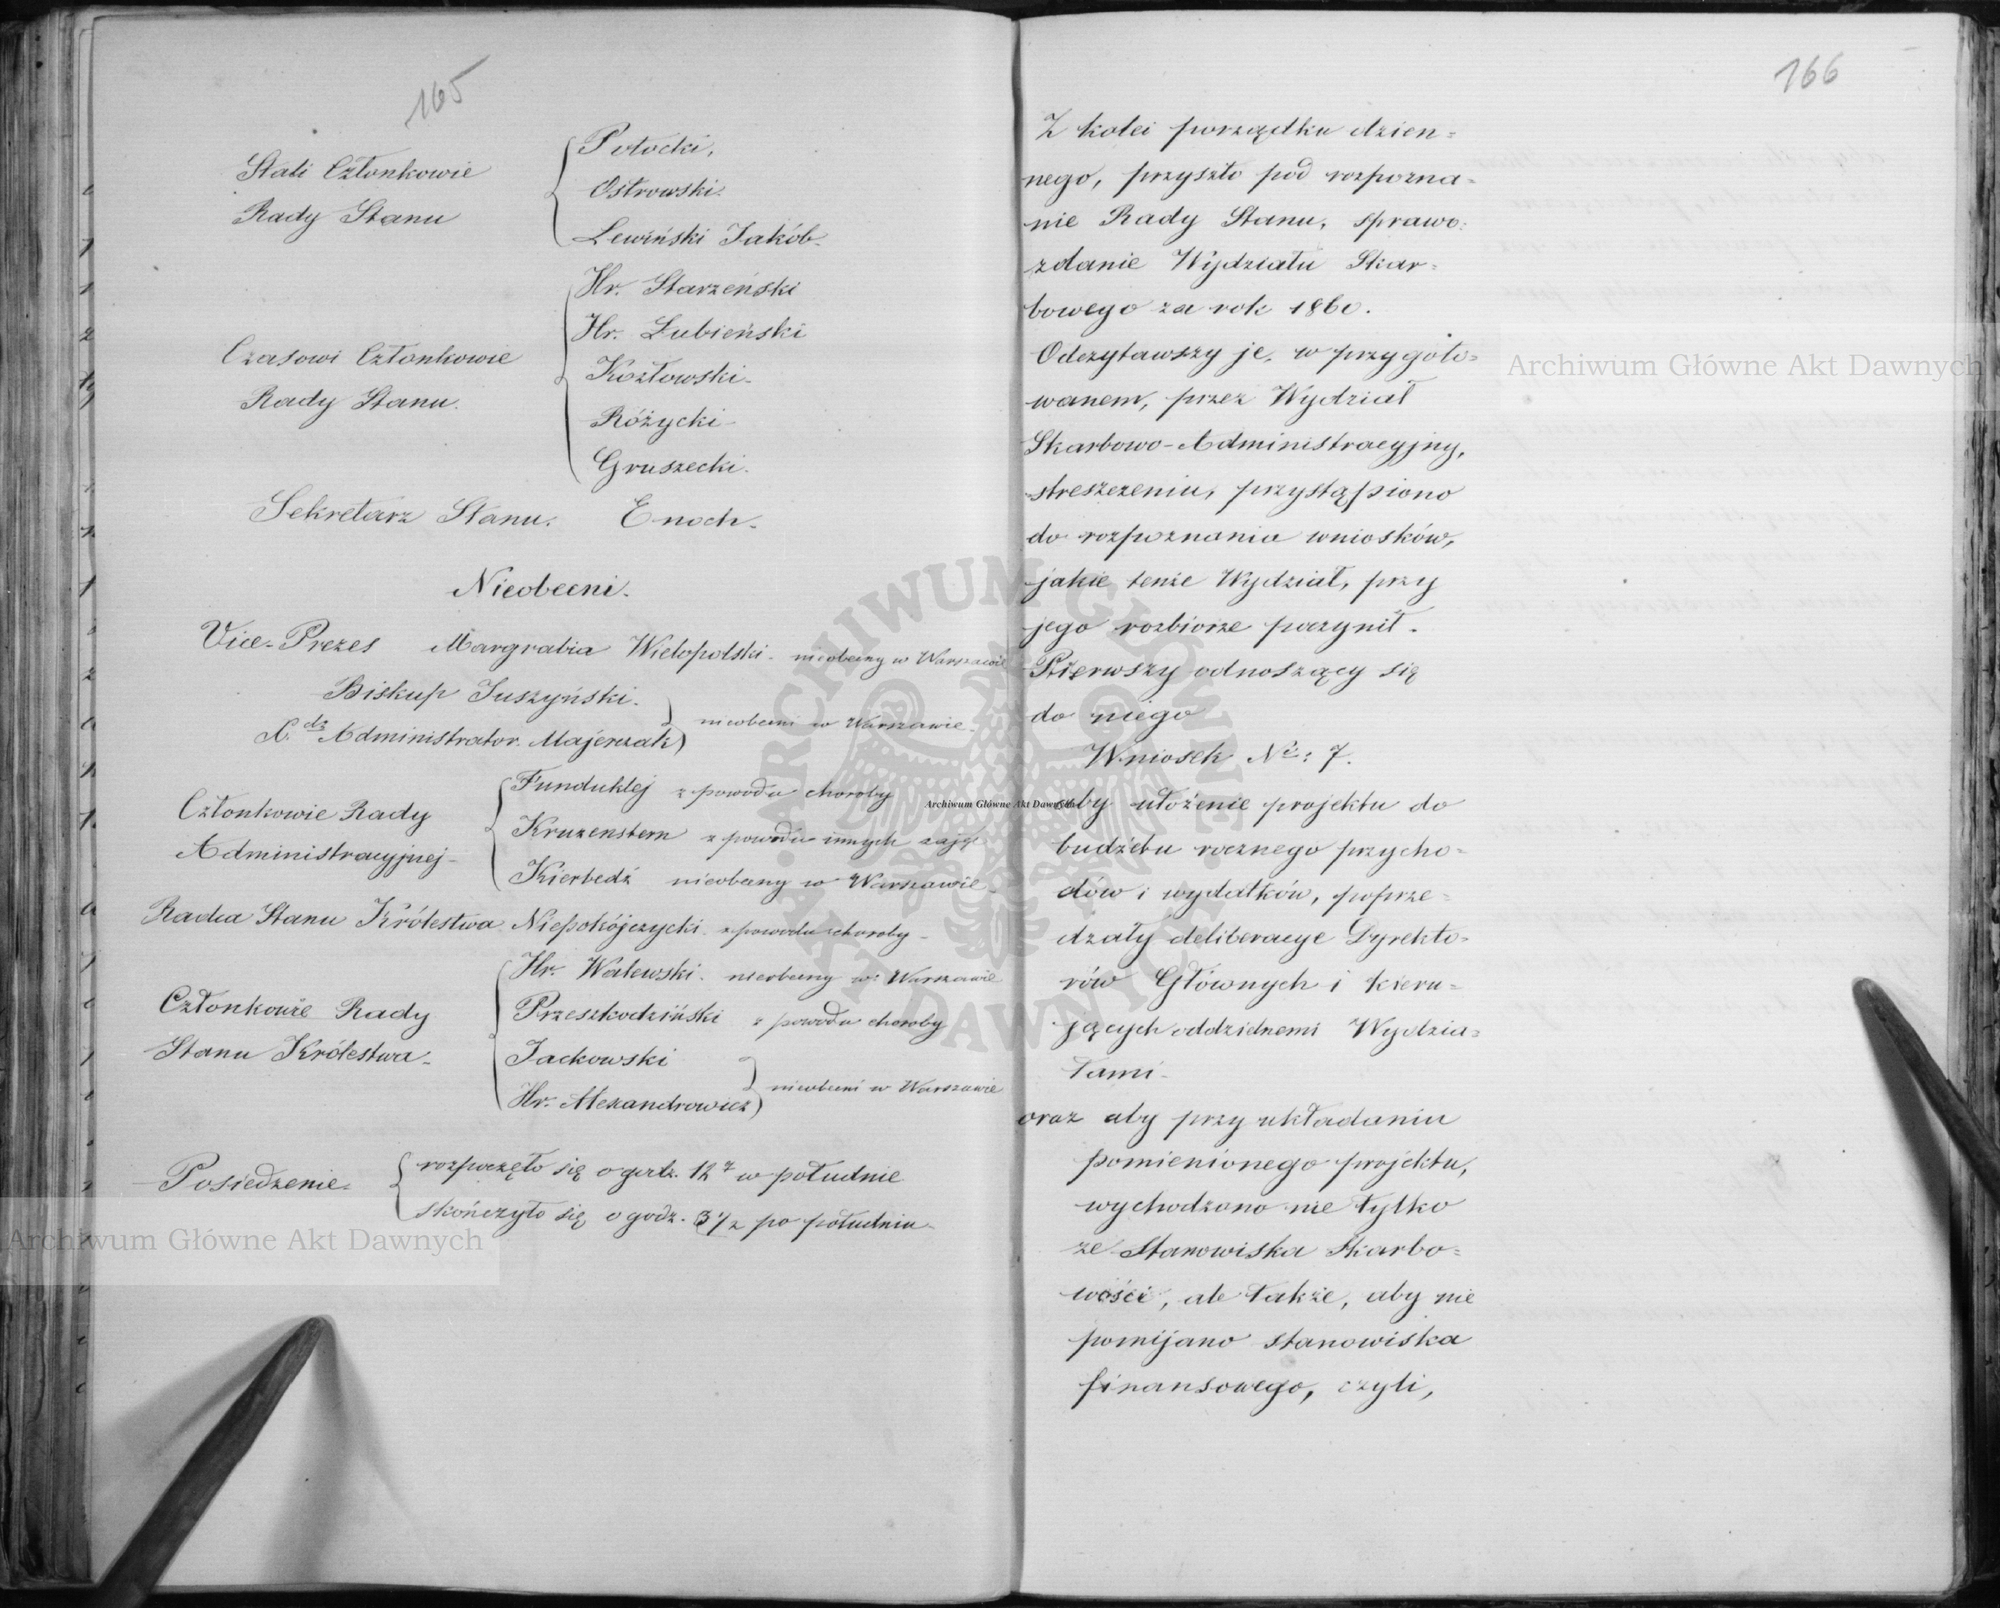 165
Stali Członkowie
Rady Stanu
Potocki,
Ostrowski.
Lewiński Jakób.
Czasowi Członkowie
Rady Stanu.
Hr. Starzeński
Hr. Łubieński
Kozłowski.
Różycki
Gruszecki.
Sekretarz Stanu. Enoch.
Nieobecni.
Vice-Prezes Margrabia Wielopolski. nieobecny w Warszawie
Biskup Juszyński.
X.dz Administrator Majerczak
nieobecni w Warszawie.
Członkowie Rady
Administracyjnej
Funduklej z powodu choroby
Kruzenstern z powodu innych zajęć
Kierbedź nieobecny w Warszawie
Radca Stanu Królestwa Niepokójczycki z powodu choroby
Członkowie Rady
Stanu Królestwa
Hr. Walewski. nieobecny w Warszawie
Przeszkodziński z powodu choroby
Jackowski
Hr. Alexandrowicz
nieobecni w Warszawie
Posiedzenie
rozpoczęło się o godz. 12 w południe
skończyło się o godz. 3 1/2 po południu
166
Z kolei porządku dzien=
nego, przyszło pod rozpozna=
nie Rady Stanu, sprawo=
zdanie Wydziału Skar=
bowego za rok 1860.
Odczytawszy je, w przygoto=
wanem, przez Wydział
Skarbowo-Administracyjny,
streszczeniu, przystąpiono
do rozpoznania wniosków,
jakie tenże Wydział, przy
jego rozbiorze poczynił.
Pierwszy odnoszący się
do niego
Wniosek No: 7.
aby ułożenie projektu do
budżetu rocznego przycho=
dów i wydatków, poprze=
dzały deliberacye Dyrekto=
rów Głównych i kieru=
jących oddzielnemi Wydzia=
łami
oraz aby przy układaniu
pomienionego projektu,
wychodzono nie tylko
ze Stanowiska Skarbo=
wości, ale także, aby nie
pomijano stanowiska
finansowego, czyli,
Archiwum Główne Akt Dawnych
Archiwum Główne Akt Dawnych
Archiwum Główne Akt Dawnych
ARCHIWUM GŁÓWNE AKT DAWNYCH